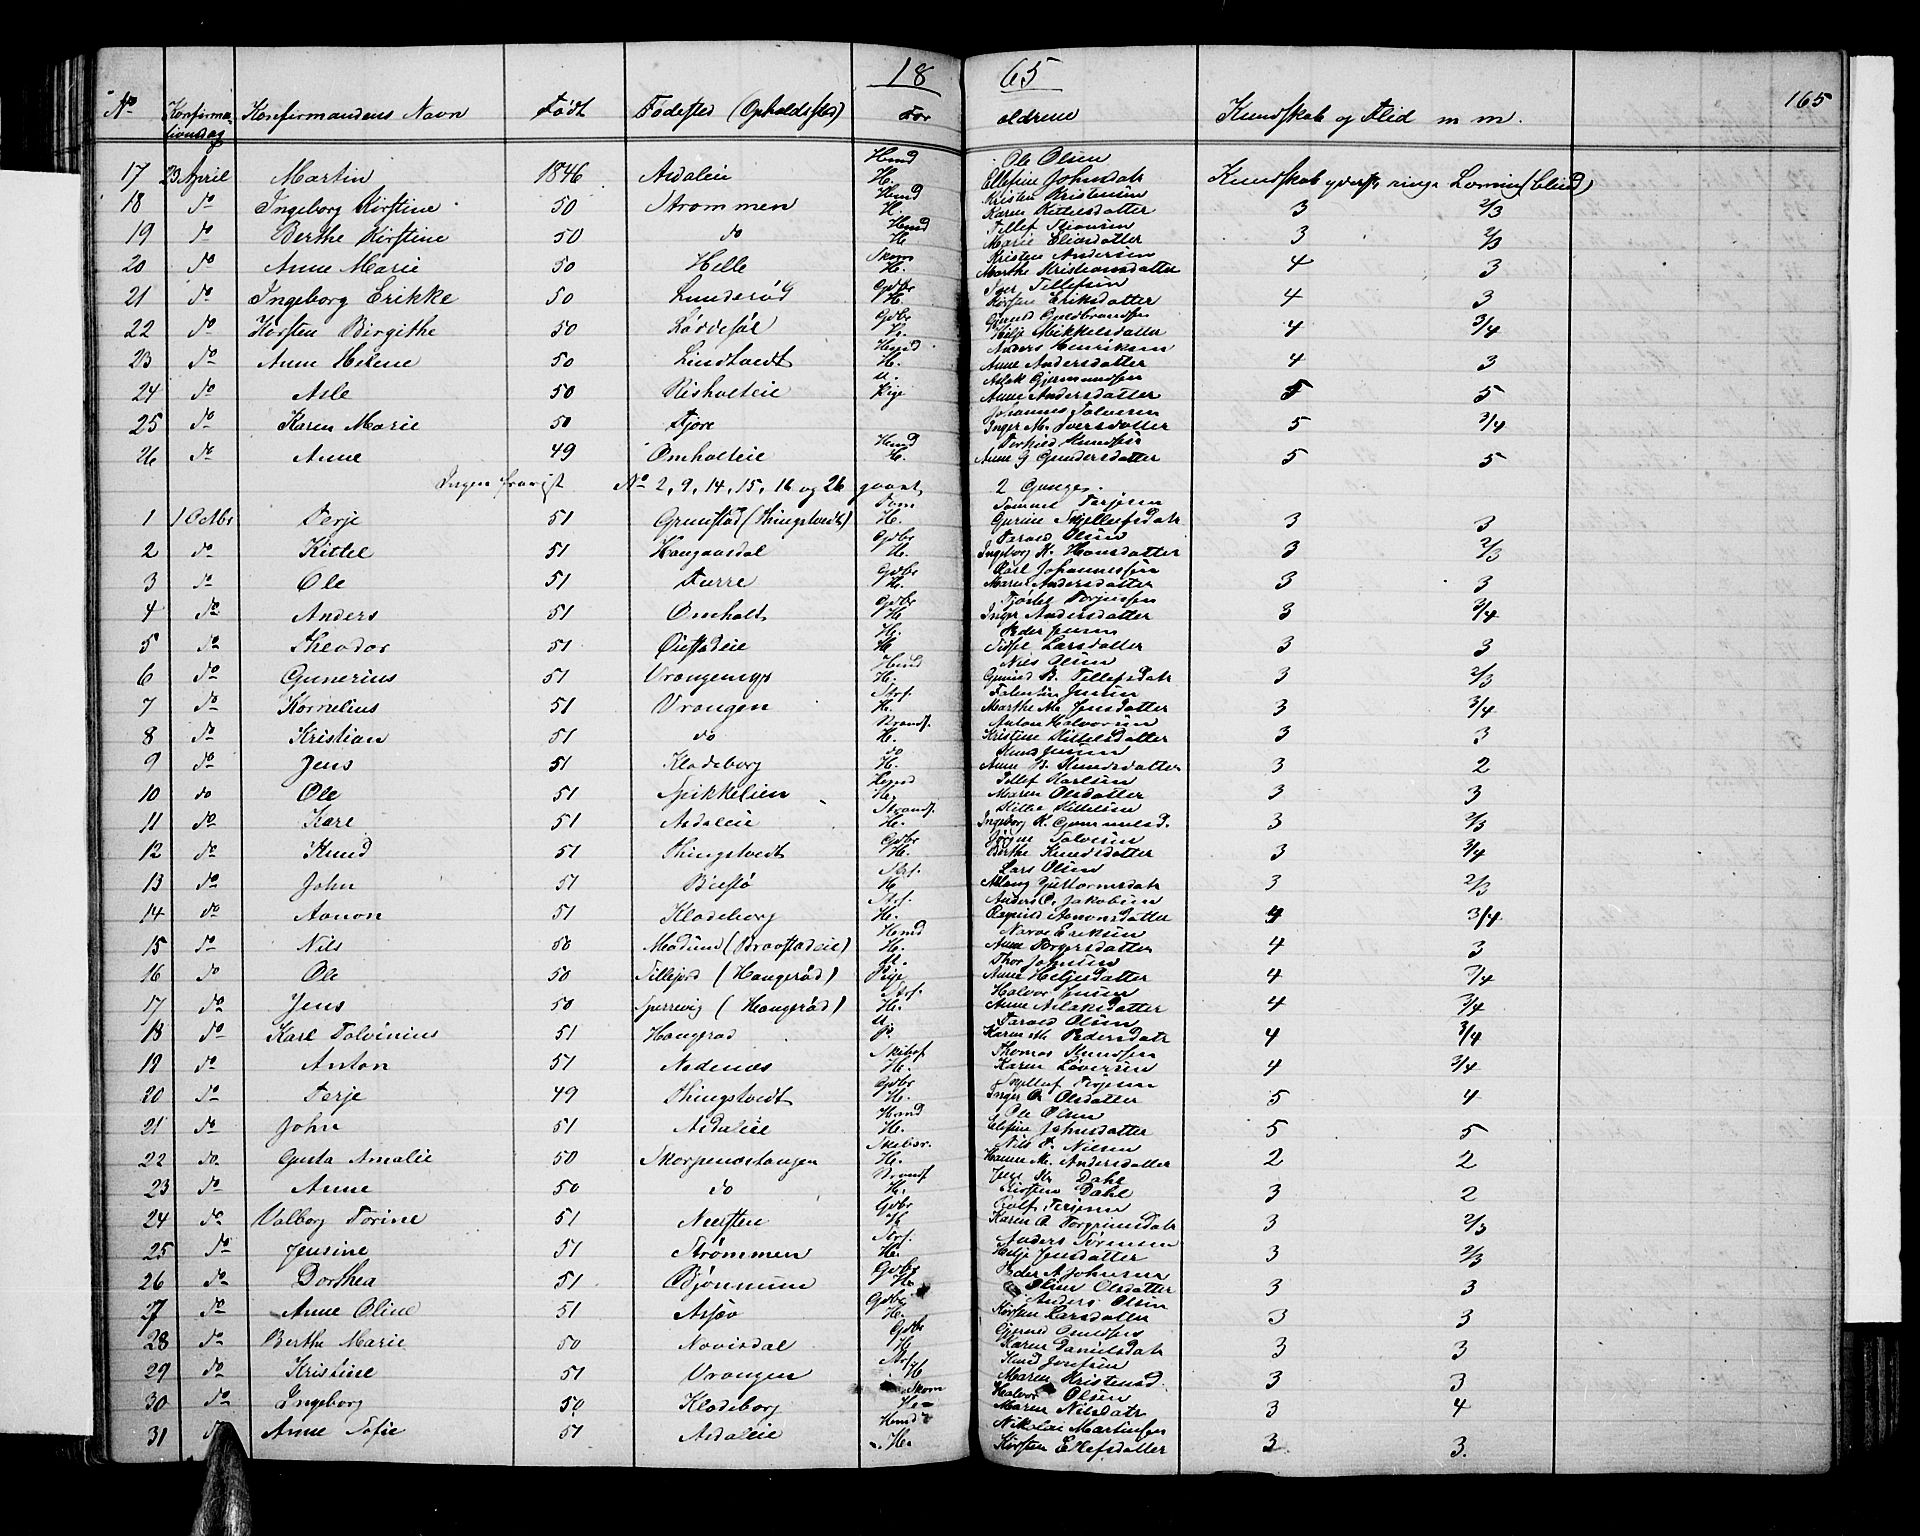 18 65
165
No Konfirmationsdag Konfirmandens Navn Født Fødested (Opholdssted) For ældrene Kundskab og Flid m m.
17 23 April Martin 1846 Asdaleie Hmd Ole Olsen H. Ellefine Johnsdatr Kundskab yderst ringe
18 do Ingeborg Kirstine 50 Strømmen Hmd Kristen Kristensen H. Karen Kittelsdatter 3 2/3
19 do Berthe Kirstine 50 do Hmd Tellef H. Marie Eliasdatter 3 2/3
20 do Anne Marie 50 Helle Skom Kristen Andersen H. Marthe Kristiansdatter 4 3
21 do Ingeborg Erikke 50 Lunderød Gdbr Tellefsen H. Kirsten Eriksdatter 4 3
22 do Kirsten Birgithe 50 Løddesøl Gdbr Gjerud Guldbrandsen H. Helje Mikkelsdatter 4 3/4
23 do Anne Helene 50 Lindtveidt Hmd Anders Henriksen H. Anne Andersdatter 4 3
24 do Asle 50 Risholteie U. Aslak Gjermundsen Pige Anne Andersdatter 5 5
25 do Karen Marie 50 Fjære Johannes Talvesen Inger M. Iversdatter 5 3/4
26 do Anne 49 Omholteie Hmd Terkild Knudsen H. Anne G Gundersdatter 5 5
Ingen fravist No 2, 9, 14, 15, 16 og 26 gaaet 2 Gange.
1 1 Octbr Terje 51 Grimstad (Thingstvedt) Tøm Tommes Terjesen H. Gurine Kjellefsdatr 3 3
2 do Kittel 51 Haugaasdal Gdbr Tarald Olsen H. Ingeborg K. Hansdatter 3 2/3
3 do Ole 51 Furre Gdbr Karl Johannessen H. Maren Andersdatter 3 3
4 do Anders 51 Omholt Gdbr Fjøstel Torjussen H. Inger Andersdatter 3 3/4
5 do Theodor 51 Øiestadeie H. Peder Jensen H Larsdatter 3 3
6 do Gunerius 51 Vrangeneye Hmd Nils Olsen H. Gunild B. Tellefsdatr 3 2/3
7 do Kornelius 51 Vrangen Strf. Falentin Jensen H. Marthe M. Jensdatter 3 3/4
8 do Kristian 51 do Strandf. Anton Halvorsen H. Kristine Kittelsdatter 3 3
9 do Jens 51 Klodeborg do Knud Jensen H. Anne B. Knudsdatter 3 2
10 do Ole 51 Spikkelien Hmd Tellef Karlsen H. Maren Olsdatter 3 3
11 do Karl 51 Asdaleie Strandf. Kittel Kittelsen H. Ingeborg K. Gunnulsd. 3 2/3
12 do Knud 51 Thingstvedt Gdbr Jørgen Talvesen H. Berthe Knudsdatter 3 3/4
13 do John 51 Biestø Strf. Lars Olsen H Aslaug Guttormsdatr 3 2/3
14 do Aanon 51 Klodeborg Strf. Anders O. Jakobsen H. Ragnild Aanonsdatter 4 3/4.
15 do Nils 50 Modum (Braastadeie) Hmd Narve Eriksen H. Anne Torgersdatter 4 3
16 do Ole 50 Tellejord (Haugerød) U. Thor Johnsen Pige Anne Heljesdatter 4 3/4
17 do Jens 50 Sperrevig (Haugerød) Strf. Halvor Jensen H. Anne Aslaksdatter 4 3/4
18 do Karl Talvinius 51 Haugrød U Tarald Olsen P. Karen M. Pedersdatr 4 3/4
19 do Anton 51 Nedenæs Skibsf Thomas Knudsen H. Karen Løversen 4 3/4
20 do Terje 49 Thingstvedt Gdbr Kjellef Terjesen H. Inger A. Olsdatter 5 4
21 do John 51 Asdaleie Hmd Ole Olsen H. Elefine Johnsdatter 5 5
22 do Gusta Amalie 50 Skarpenæstangen Skibsr. Nils F. Nilsen H. Hanne M. Andersdatter 2 2
23 do Anne 50 do Strandf Jens Kr Dahl H. Kirsten Dahl 3 2
24 do Valborg Torine 51 Neersten Gdbr Rolf Terjesen H Karen A Torgrimsdatr 3 2/3
25 do Jensine 51 Strømmen Strf. Anders Tørresen H. Helje Jensdatter 3 2/3
26 do Dorthea 51 Bjønnum Gdbr Peder A Johnsen H. Elin Olsdatter 3 3
27 do Anne Oline 51 Assæv Gdbr Anders Olsen H. Kirsten Larsdatter 3 3
28 do Berthe Marie 50 Novisdal Gdbr Gjerud Omundsen H Karen Danielsdatr 3 3
29 do Kristine 51 Vrangen Strf. Knud Josefsen H Maren Kristensd 3 3
30 do Ingeborg 50 Klodeborg Skom Halvor Olsen H. Maren Nilsdatr 3 4
31 do Anne Sofie 51 Asdaleie Hmd Nikolai Martinsen H. Kirsten Ellefsdatter 3 3.